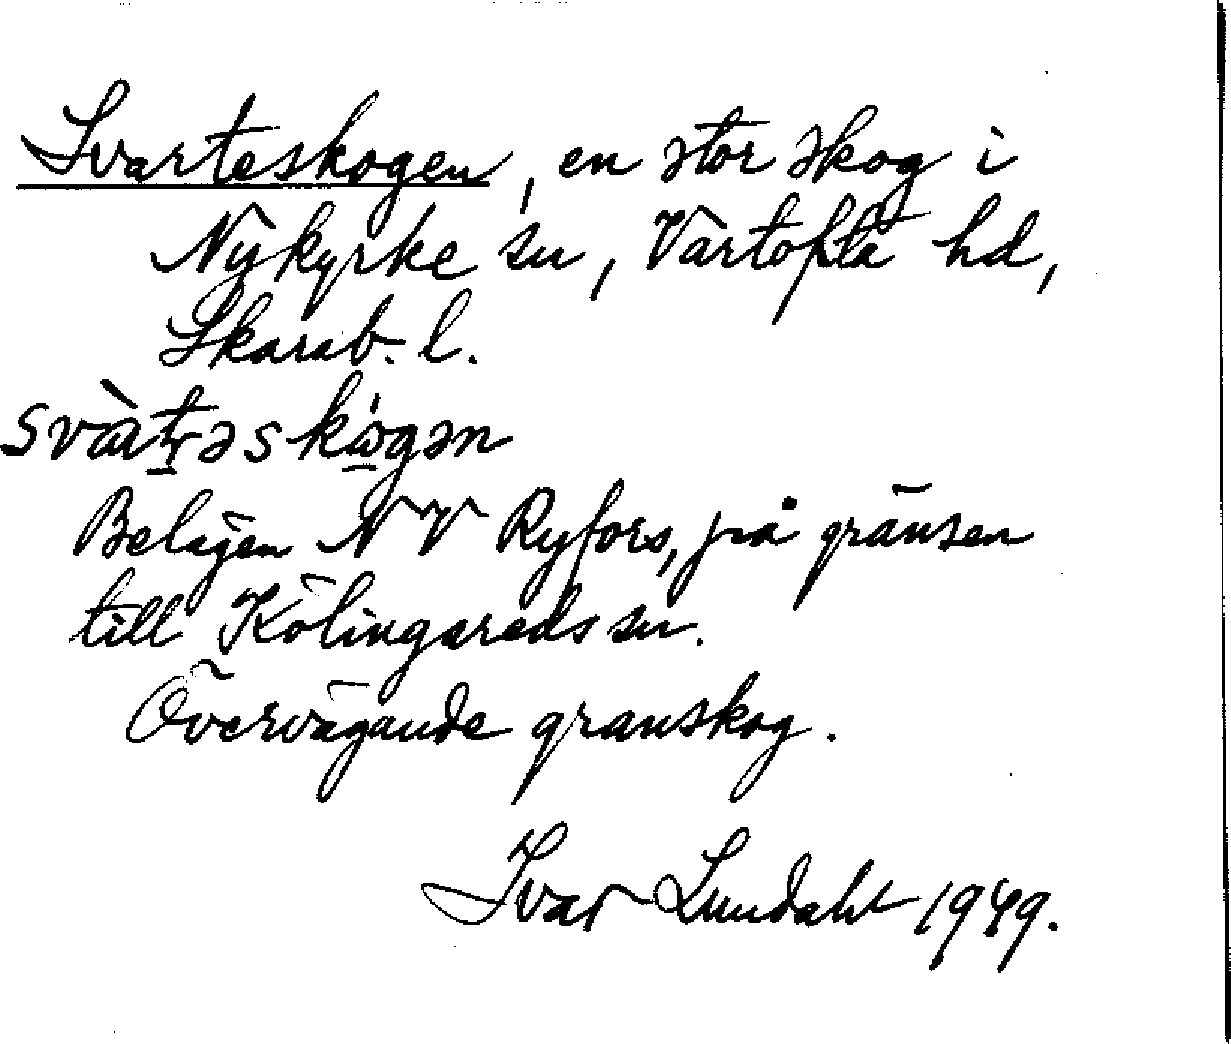 Svarteskogen, en stor skog i
Nykyrke sn, Vartofta hd,
Skarab. l.
svàtəskógən
Belägen NV Ryfors, på gränsen
till Kölingareds sn.
Övervägande granskog.
Ivar Lundahl 1949.